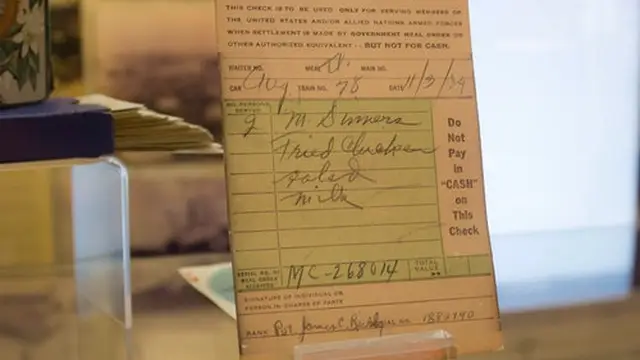 THIS CHECK IS TO BE USED ONLY FOR SERVING MEMBERS OF
THE UNITED STATES AND/OR ALLIED NATIONS ARMED FORCES
WHEN SETTLEMENT IS MADE BY GOVERNMENT MEAL ORDER OR
OTHER AUTHORIZED EQUIVALENT - - BUT NOT FOR CASH.
WAITER NO. MEAL MAIN NO.
CAR TRAIN NO. 78 DATE
NO. PERSONS SERVED
2 M Dinners
Fried Chicken
salad
milk
Do
Not
Pay
in
"CASH"
on
This
Check
SERIAL NO. OF
MEAL ORDER
MC-268014 TOTAL VALUE
SIGNATURE OF INDIVIDUAL OR
PERSON IN CHARGE OF PARTY
RANK Pvt James C. NO.